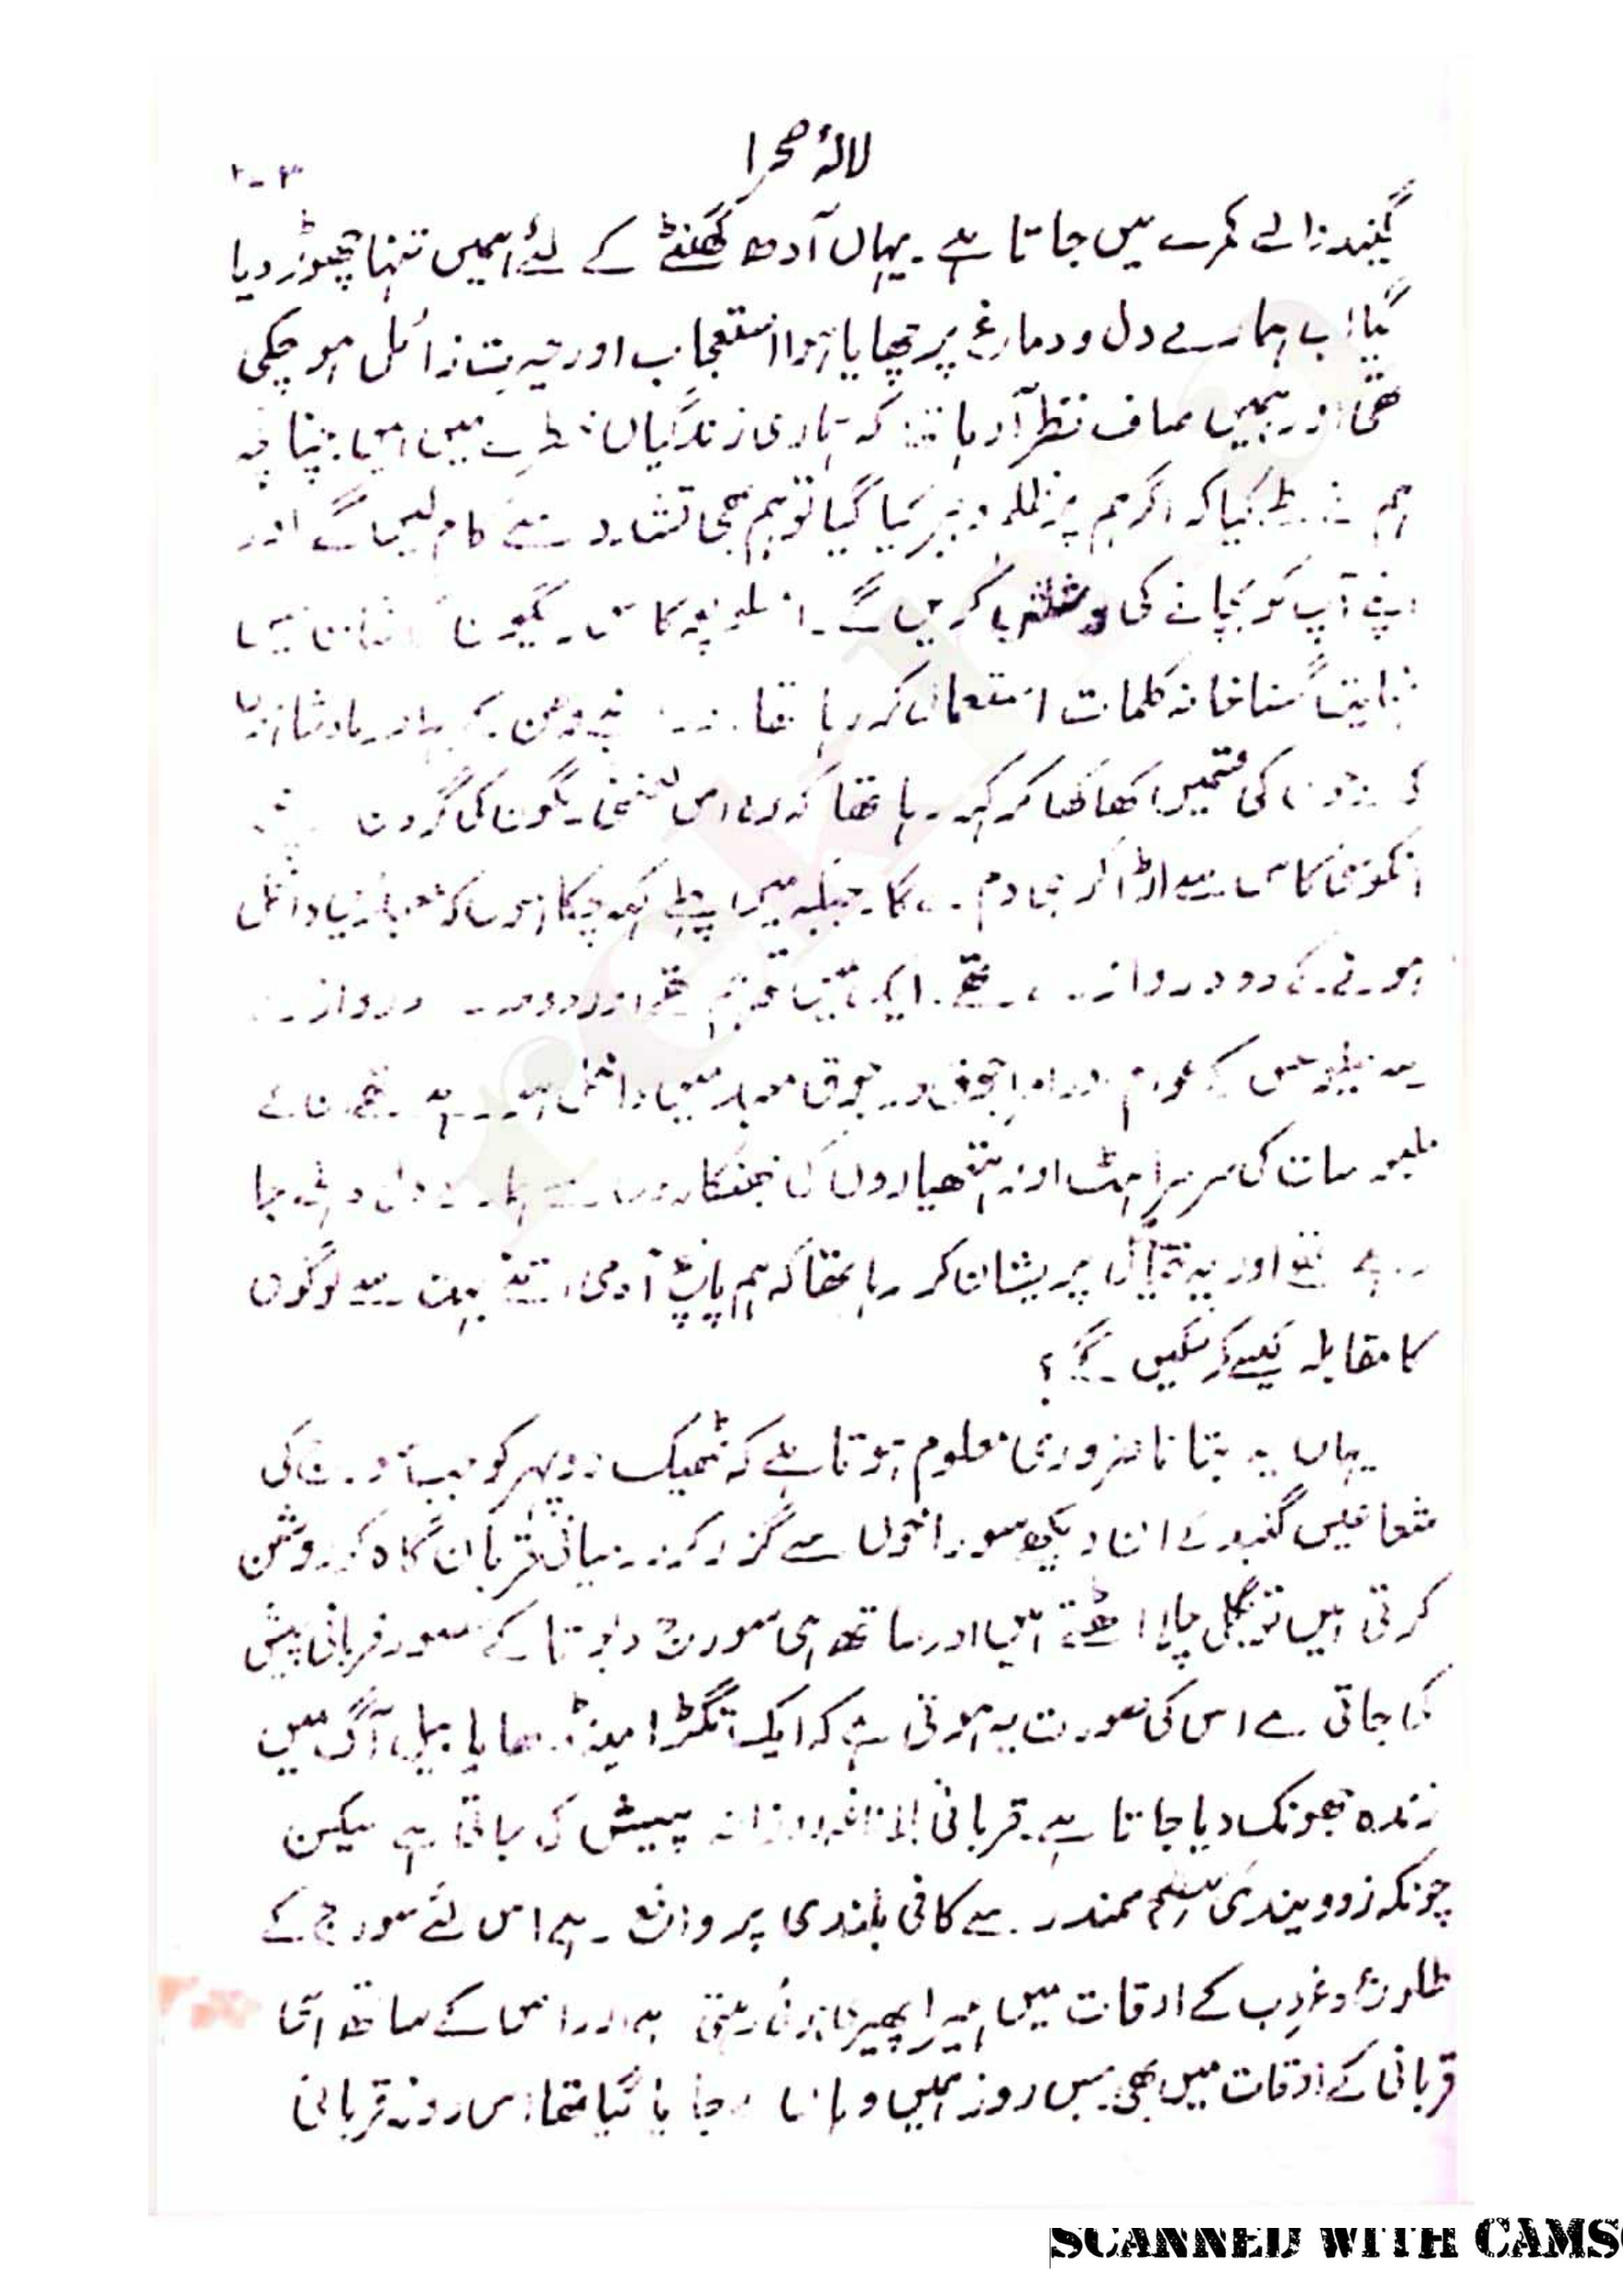 لالۂ صحرا
۲۰۳
گنبد والے کمرے میں جاتا ہے۔ یہاں آدھ گھنٹے کے لئے ہمیں تنہا چھوڑ دیا
گیا اب ہمارے دل و دماغ پر چھایا ہوا استعجاب اور حیرت زائل ہو چکی
تھی اور ہمیں صاف نظر آ رہا تھا کہ ہماری زندگیاں خطرے میں ہیں چنانچہ
ہم نے طے کیا کہ اگر ہم پر ظلم و جبر کیا گیا تو ہم بھی تشدد سے کام لیں گے اور
اپنے آپ کو بچانے کی کریں گے۔
نہایت گستاخانہ کلمات استعمال کر رہا تھا۔
کی قسمیں کھا کھا کر کہہ رہا تھا کہ وہ اس کی گردن
اڑا کر ہی دم لے گا۔ جیسا کہ میں پہلے کہہ چکا ہوں کہ معبد میں داخل
ہونے کے دو دروازے تھے۔ ایک تھے اور دوسرے دروازے
سے کے عوام اور امرا جوق در جوق معبد میں داخل ہو رہے تھے ان کے
ملبوسات کی سرسراہٹ اور ہتھیاروں کی جھنکاروں سے ہمارے دل دہلے جا
رہے تھے اور یہ خیال پریشان کر رہا تھا کہ ہم پانچ آدمی اتنے بہت سے لوگوں
کا مقابلہ کیسے کر سکیں گے؟
یہاں یہ بتانا ضروری معلوم ہوتا ہے کہ ٹھیک دوپہر کو جب سورج کی
شعاعیں گنبد کے ان دیکھے سوراخوں سے گزر کر درمیانی قربان گاہ کو روشن
کرتی ہیں تو بگل چلا اٹھتے ہیں اور ساتھ ہی سورج دیوتا کے حضور قربانی پیش
کی جاتی ہے اس کی صورت یہ ہوتی ہے کہ ایک تگڑا مینڈھا یا بیل آگ میں
زندہ جھونک دیا جاتا ہے۔ قربانی بلا ناغہ روزانہ پیش کی جاتی ہے لیکن
چونکہ زوویندی سطح سمندر سے کافی بلندی پر واقع ہے اس لئے سورج کے
طلوع و غروب کے اوقات میں ہیرا پھیری ہوتی رہتی ہے اور اس کے ساتھ ہی
قربانی کے اوقات میں بھی جس روز ہمیں وہاں لے جایا گیا تھا اس روز قربانی
SCANNED WITH CAMS